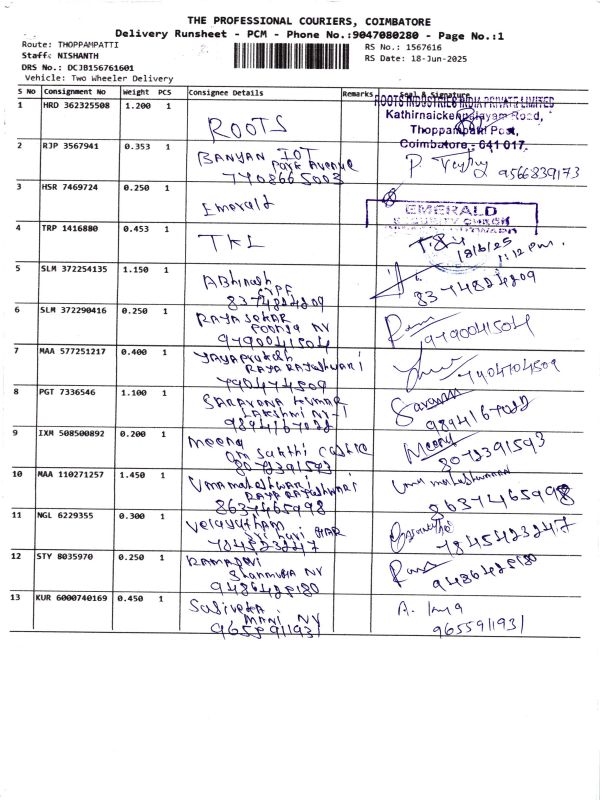 THE PROFESSIONAL COURIERS, COIMBATORE
Delivery Runsheet - PCM - Phone No.:9047080280 - Page No.:1
Route: THOPPAMPATTI
Staff: NISHANTH
DRS No.: DCJB156761601
Vehicle: Two Wheeler Delivery
RS No.: 1567616
RS Date: 18-Jun-2025
S No Consignment No Weight PCS Consignee Details Remarks Seal & Signature
1 HRD 362325508 1.200 1
ROOTS
ROOTS INDUSTRIES INDIA PRIVATE LIMITED
Kathirnaickenpalayam Road,
Thoppampatti Post,
Coimbatore - 641 017.
2 RJP 3567941 0.353 1
BANYAN IOT
Park Avenue
7708665003
9566839173
3 HSR 7469724 0.250 1
Emerald
EMERALD
SECURITY CHECK
4 TRP 1416880 0.453 1
TKL
18/6/25
1:12 pm.
5 SLM 372254135 1.150 1
ABhinash
8374824809
8374824809
6 SLM 372290416 0.250 1
RAJASEKAR
9790041504
9790041504
7 MAA 577251217 0.400 1
Jayaprakash
RAYA RAJeshwari
7904704509
8 PGT 7336546 1.100 1
SARAVANA KUMAR
LAKSHMI NY-1
9894167022
Saravanan
9894167022
9 IXM 508500892 0.200 1
meena
om Sakthi
8072391593
Meena
8072391593
10 MAA 110271257 1.450 1
Umamaheshwari
RAYA RAJeshwari
8637465998
uma maheshwari
8637465998
11 NGL 6229355 0.300 1
Velayutham
Sri hari
7845423247
12 STY 8035970 0.250 1
RAMADEVI
Shanmuga NY
9486428180
9486428180
13 KUR 6000740169 0.450 1
MANI NY
9655911931
9655911931